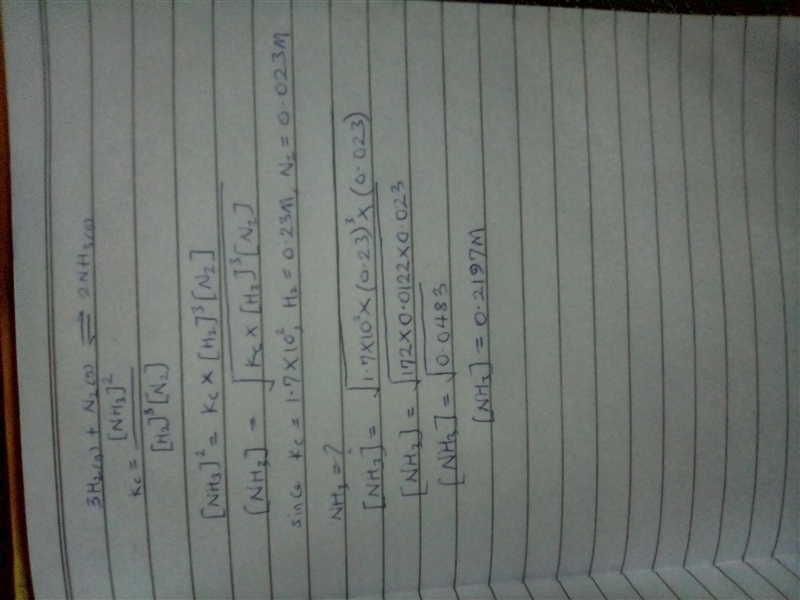 3H₂(g) + N₂(g) ⇌ 2NH₃(g)
Kc = [NH₃]² / [H₂]³[N₂]
[NH₃]² = Kc × [H₂]³[N₂]
[NH₃] = √Kc × [H₂]³[N₂]
since Kc = 1.7×10², H₂ = 0.23M, N₂ = 0.023M
NH₃ = ?
[NH₃] = √1.7×10²×(0.23)³×(0.023)
[NH₃] = √172×0.0122×0.023
[NH₃] = √0.0483
[NH₃] = 0.2197M